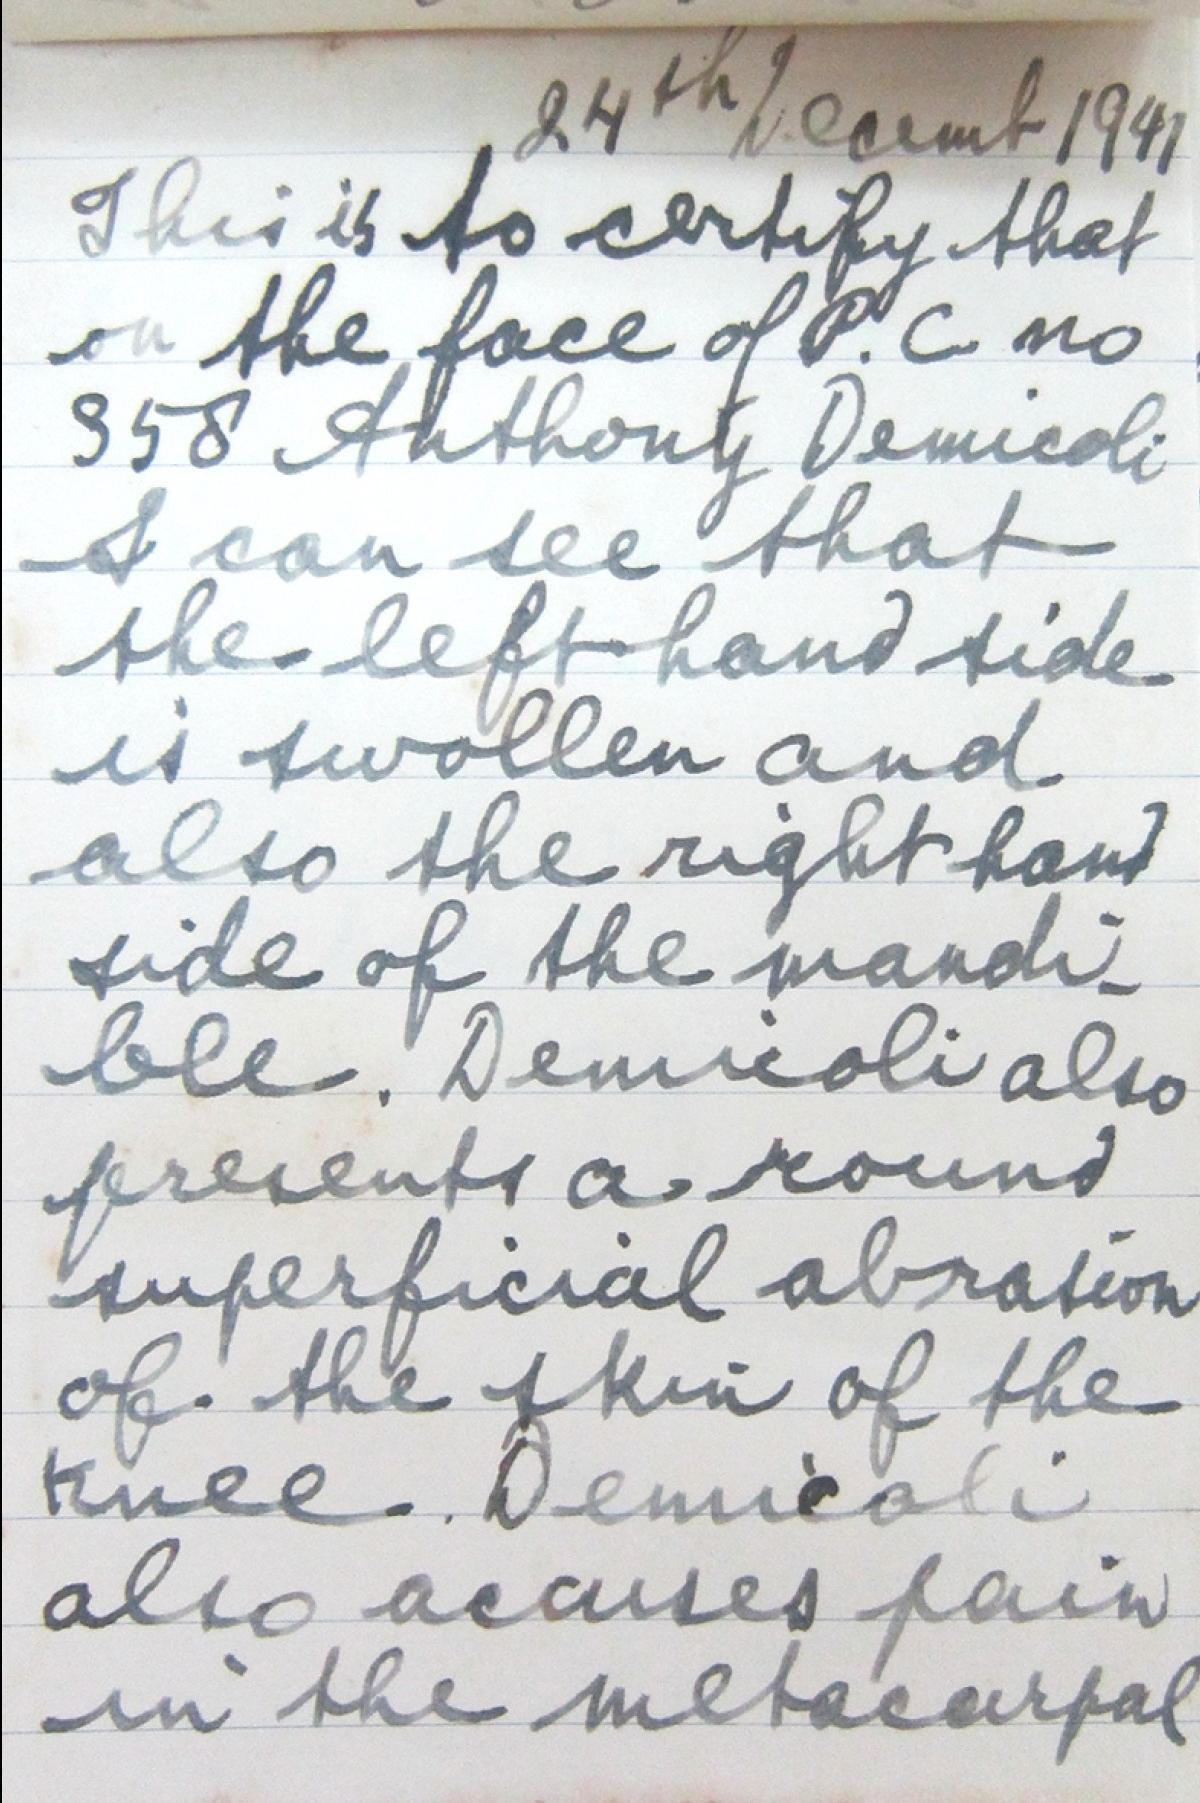 24th Decemb 1941
This is to certify that
on the face of P.C no
358 Anthony Demicoli
I can see that
the left hand side
is swollen and
also the right hand
side of the mandi-
ble. Demicoli also
presents a round
superficial abrasion
of the skin of the
knee. Demicoli
also acuses pain
in the metacarpal